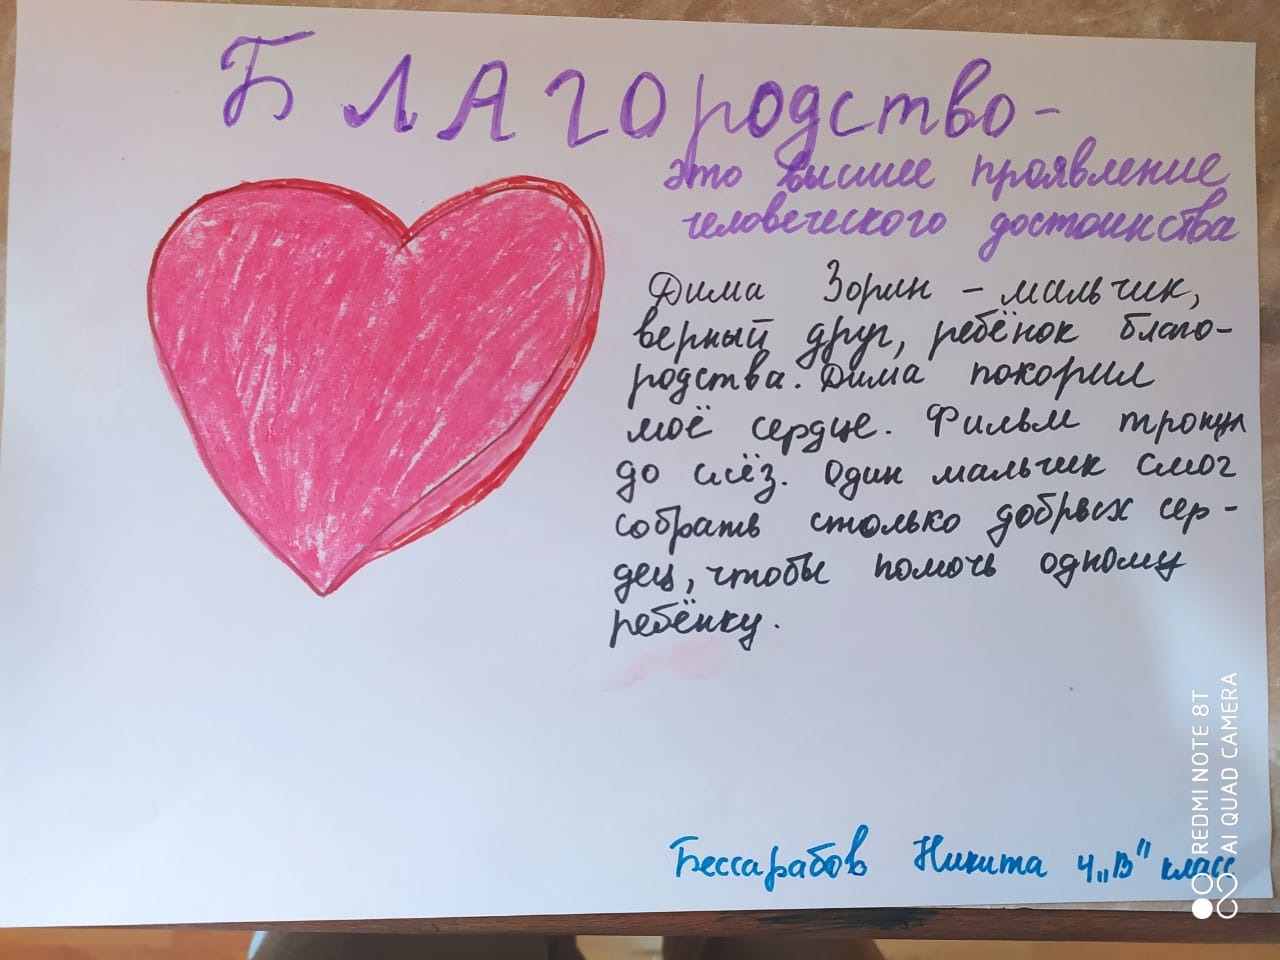 БЛАГОРОДСТВО -
это высшее проявление
человеческого достоинства
Дима Зорин - мальчик,
верный друг, ребёнок благо-
родства. Дима покорил
моё сердце. Фильм тронул
до слёз. Один мальчик смог
собрать столько добрых сер-
дец, чтобы помочь одному
ребёнку.
Бессарабов Никита 4 „В" класс
REDMI NOTE 8T
AI QUAD CAMERA